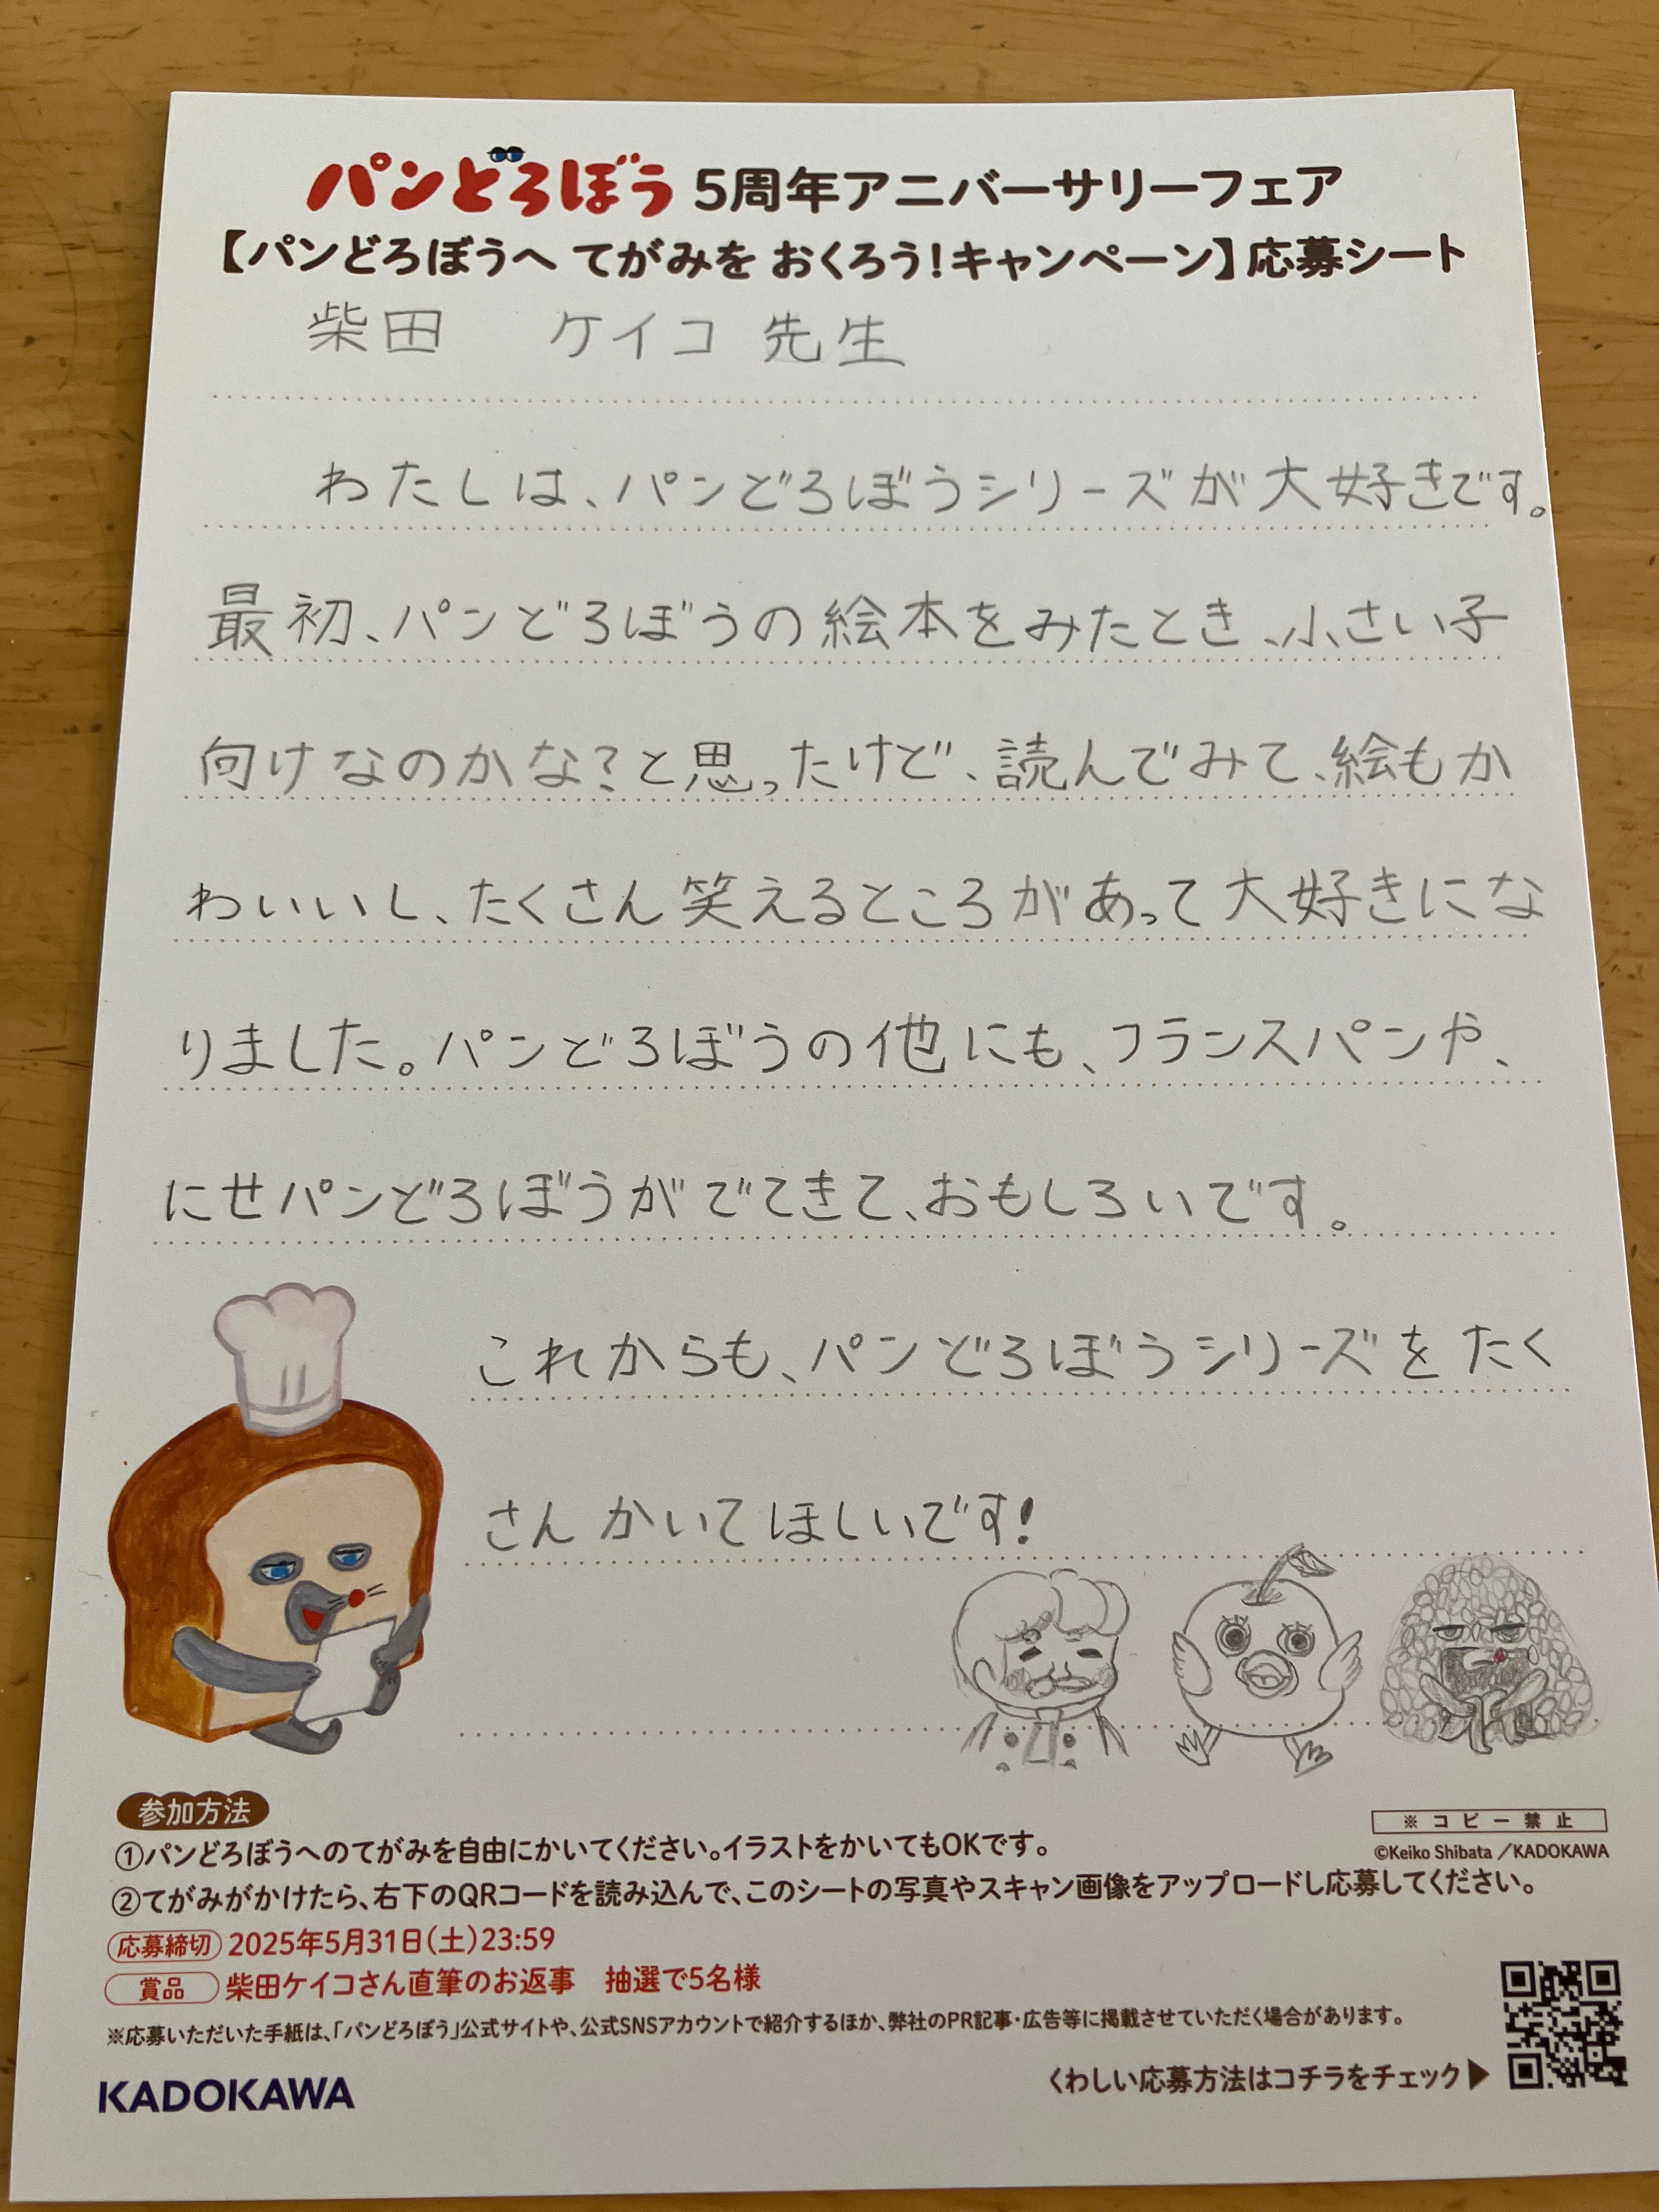 パンどろぼう 5周年アニバーサリーフェア
【パンどろぼうへ てがみを おくろう!キャンペーン】応募シート
柴田 ケイコ 先生
わたしは、パンどろぼうシリーズが大好きです。
最初、パンどろぼうの絵本をみたとき、小さい子
向けなのかな?と思ったけど、読んでみて、絵もか
わいいし、たくさん笑えるところがあって大好きにな
りました。パンどろぼうの他にも、フランスパンや、
にせパンどろぼうがでてきて、おもしろいです。
これからも、パンどろぼうシリーズをたく
さんかいてほしいです!
参加方法
①パンどろぼうへのてがみを自由にかいてください。イラストをかいてもOKです。
※コピー禁止
©Keiko Shibata/KADOKAWA
②てがみがかけたら、右下のQRコードを読み込んで、このシートの写真やスキャン画像をアップロードし応募してください。
応募締切 2025年5月31日(土)23:59
賞品 柴田ケイコさん直筆のお返事 抽選で5名様
※応募いただいた手紙は、「パンどろぼう」公式サイトや、公式SNSアカウントで紹介するほか、弊社のPR記事・広告等に掲載させていただく場合があります。
くわしい応募方法はコチラをチェック▶
KADOKAWA